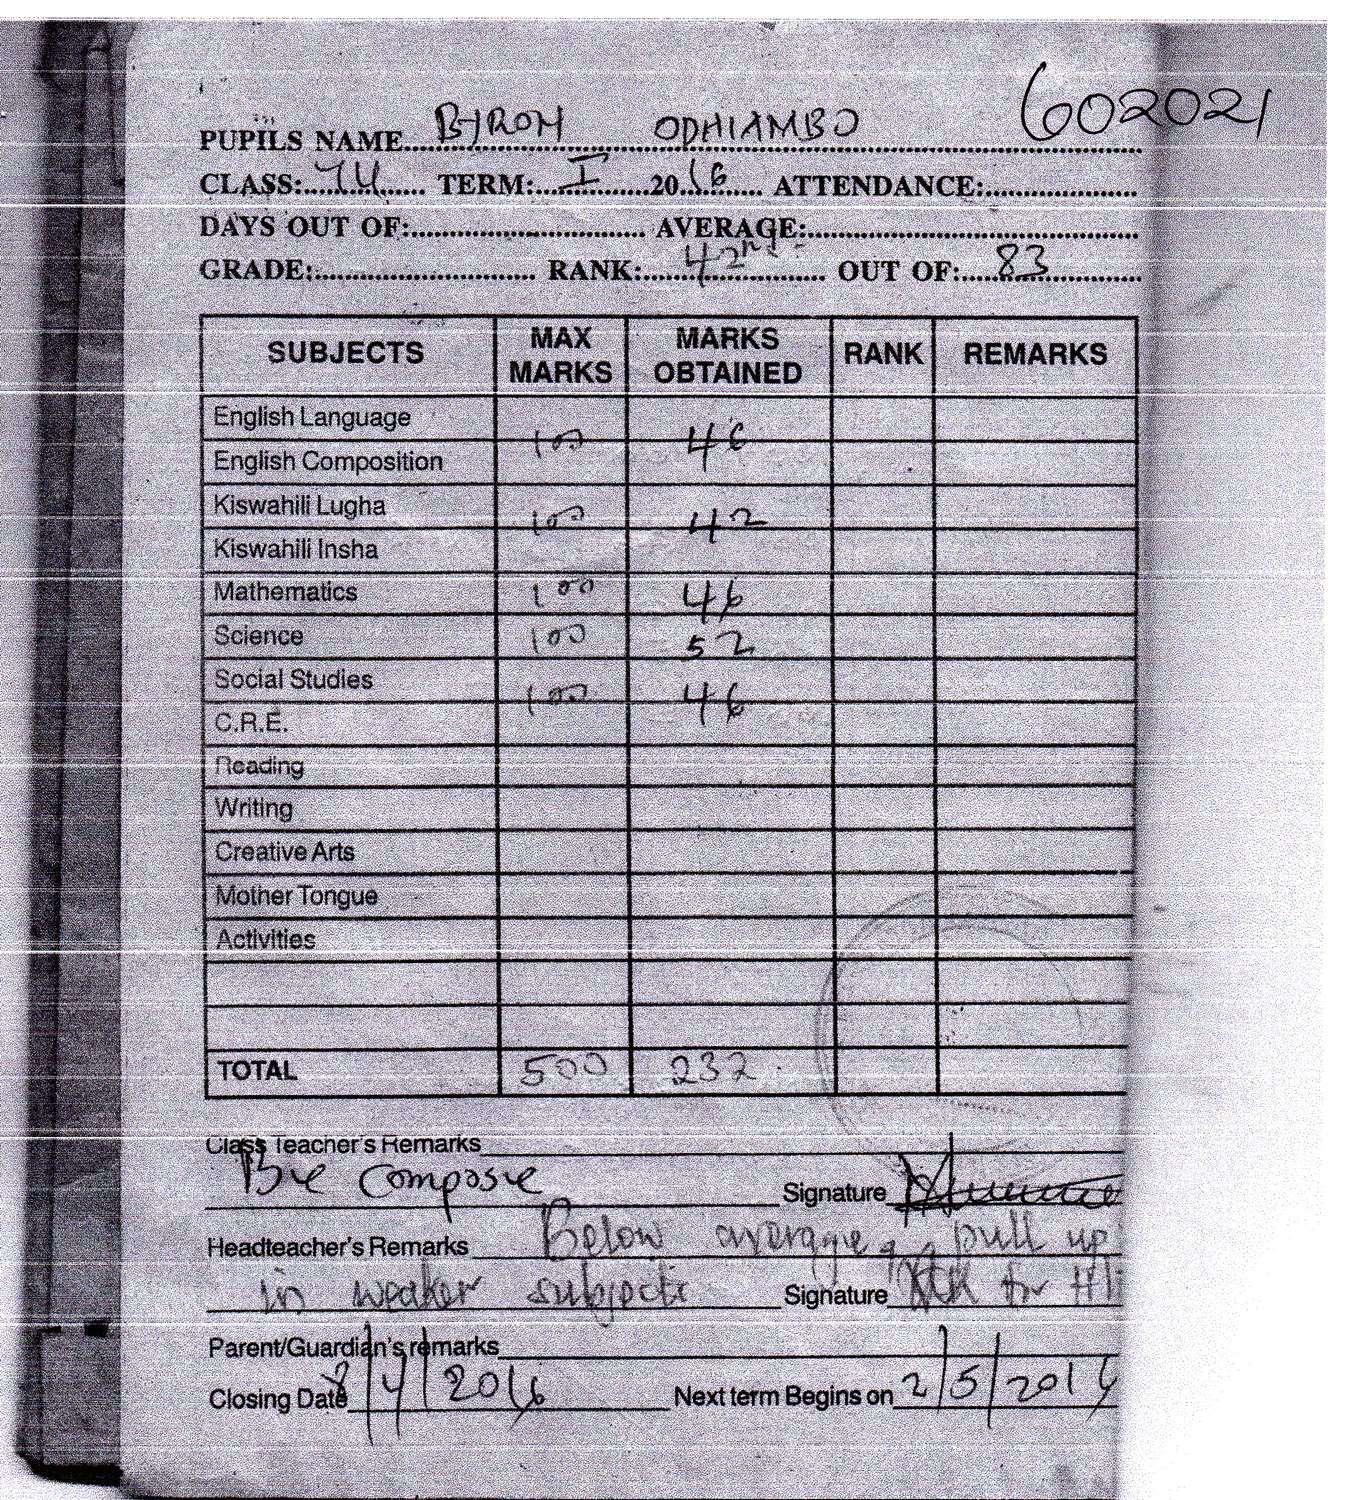 602021
PUPILS NAME BYRON ODHIAMBO
CLASS: 7U TERM: I 2016 ATTENDANCE:
DAYS OUT OF: AVERAGE:
GRADE: RANK: 42nd OUT OF: 83
SUBJECTS MAX MARKS MARKS OBTAINED RANK REMARKS
English Language
100 46
English Composition
Kiswahili Lugha
100 42
Kiswahili Insha
Mathematics 100 46
Science 100 52
Social Studies
100 46
C.R.E.
Reading
Writing
Creative Arts
Mother Tongue
Activities
TOTAL 500 232
Class Teacher's Remarks
Signature
Headteacher's Remarks Below average, pull up
in weaker subjects Signature for H/T
Parent/Guardian's remarks
Closing Date 8/4/2016 Next term Begins on 2/5/2016